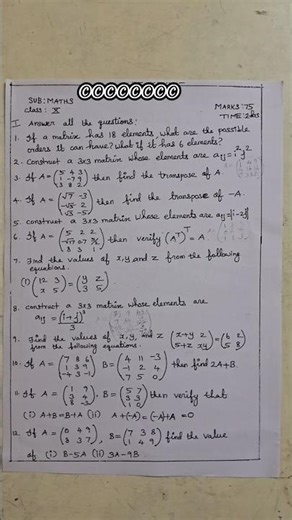 ©©©©©©©©
SUB: MATHS MARKS: 75
Class: X TIME: 2 hrs
I. Answer all the questions:
1. If a matrix has 18 elements, what are the possible
orders it can have? what if it has 6 elements?
2. Construct a 3x3 matrix whose elements are aij = i²j²
3. If A = (5 4 3 / 1 -7 9 / 3 8 2) then find the transpose of A.
4. If A = (√7 -3 / -√5 2 / √3 -5) then find the transpose of -A.
5. construct a 3x3 matrix whose elements are aij = |i-2j|
6. If A = (5 2 2 / -√17 0.7 5/2 / 8 3 1) then verify (Aᵀ)ᵀ = A
7. Find the values of x, y, and z from the following
equations.
(i) (12 3 / x 5) = (y z / 3 5)
8. construct a 3x3 matrix whose elements are
aij = (i+j)³/3
9. Find the values of x, y, and z (x+y 2 / 5+z xy) = (6 2 / 5 8)
from the following equations:
10. If A = (7 8 6 / 1 3 9 / -4 3 -1) B = (4 11 -3 / -1 2 4 / 7 5 0) then find 2A+B.
11. If A = (1 9 / 3 4 / 8 -3) B = (5 7 / 3 3 / 1 0) then verify that
(i) A+B=B+A (ii) A+(-A)=(-A)+A=0
12. If A = (0 4 9 / 8 3 7), B = (7 3 8 / 1 4 9) find the value
of (i) B-5A (ii) 3A-9B